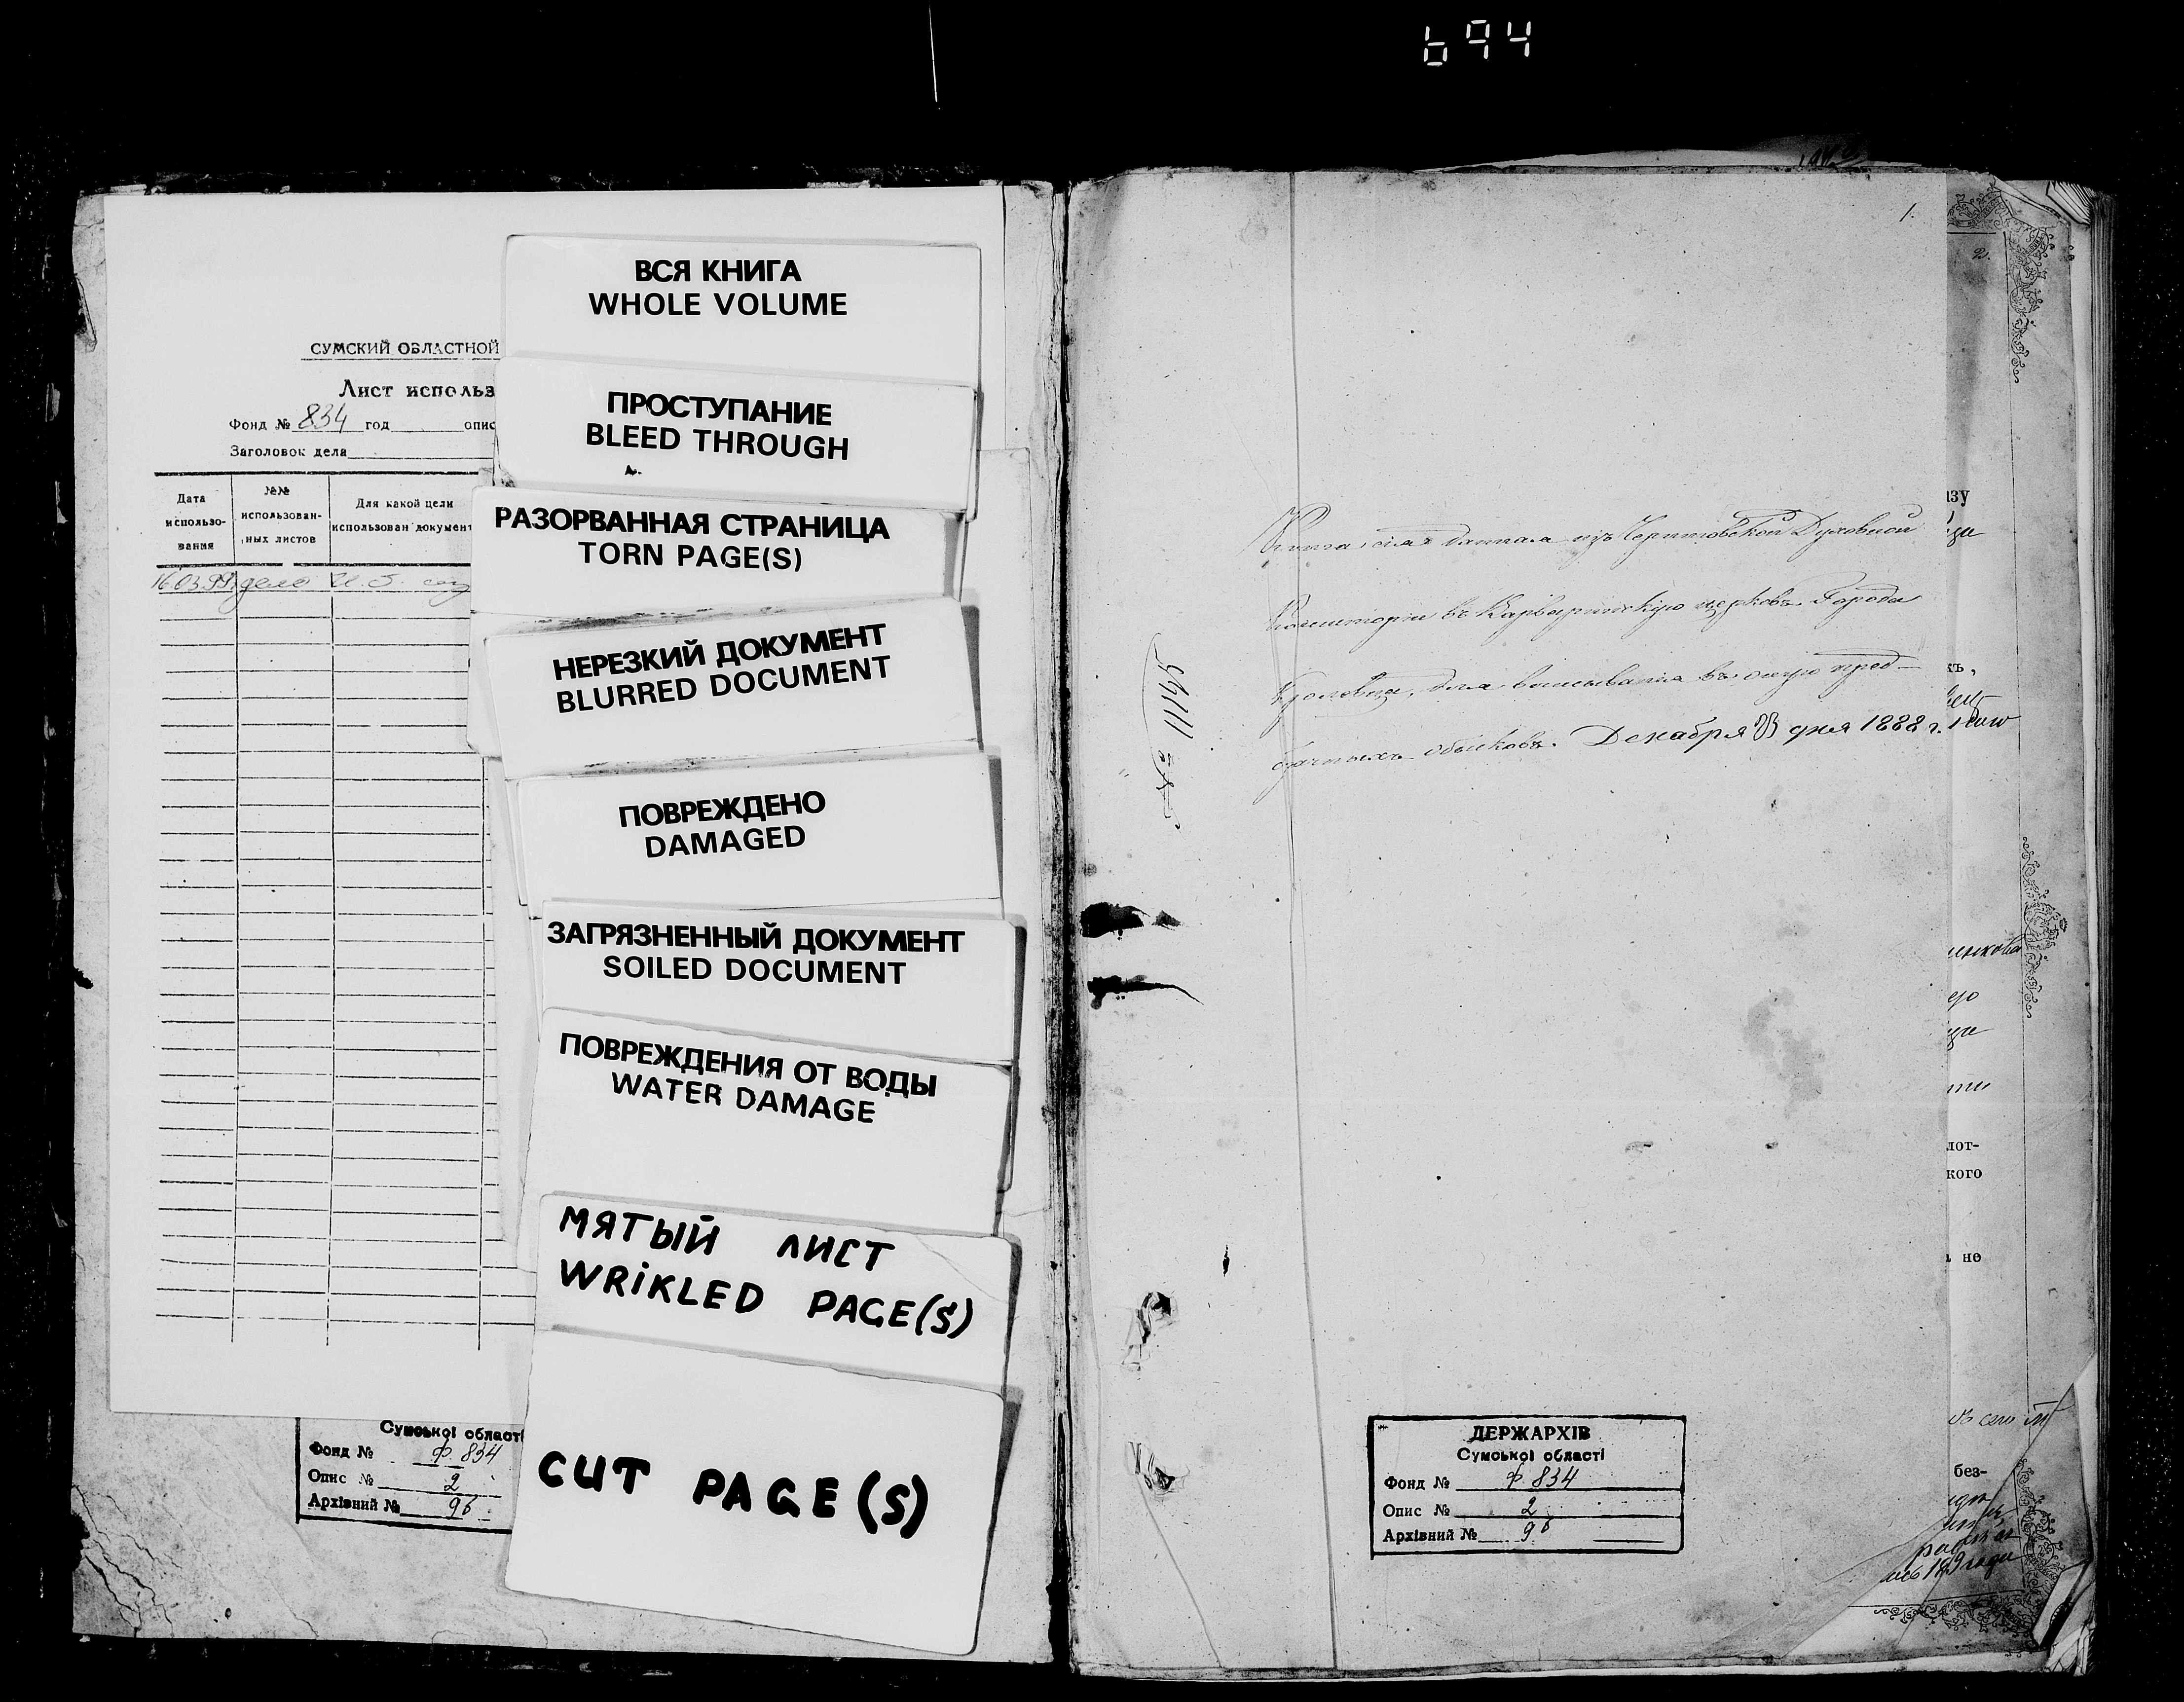 694
СУМСКИЙ ОБЛАСТНОЙ
Лист использ
Фонд № 834 год опис
Заголовок дела
Дата использо-вания
№№ использован-ных листов
Для какой цели использован документ
16.03.99 дело
ВСЯ КНИГА
WHOLE VOLUME
ПРОСТУПАНИЕ
BLEED THROUGH
РАЗОРВАННАЯ СТРАНИЦА
TORN PAGE(S)
НЕРЕЗКИЙ ДОКУМЕНТ
BLURRED DOCUMENT
ПОВРЕЖДЕНО
DAMAGED
ЗАГРЯЗНЕННЫЙ ДОКУМЕНТ
SOILED DOCUMENT
ПОВРЕЖДЕНИЯ ОТ ВОДЫ
WATER DAMAGE
МЯТЫЙ ЛИСТ
WRIKLED PAGE(S)
CUT PAGE(S)
Сумської област
Фонд № ф. 834
Опис № 2
Архівний № 96
1.
Книга сія данная изъ Черниговской Духовной
Консисторіи въ Варваринскую церковь Города
Кролевца, для вписыванія въ оную пред-
брачныхъ обысковъ. Декабря 23 дня 1888 г.
№ 11145
ДЕРЖАРХІВ
Сумської області
Фонд № ф. 834
Опис № 2
Архівний № 96
2.
азу
хъ,
лот-
кого
не
без-